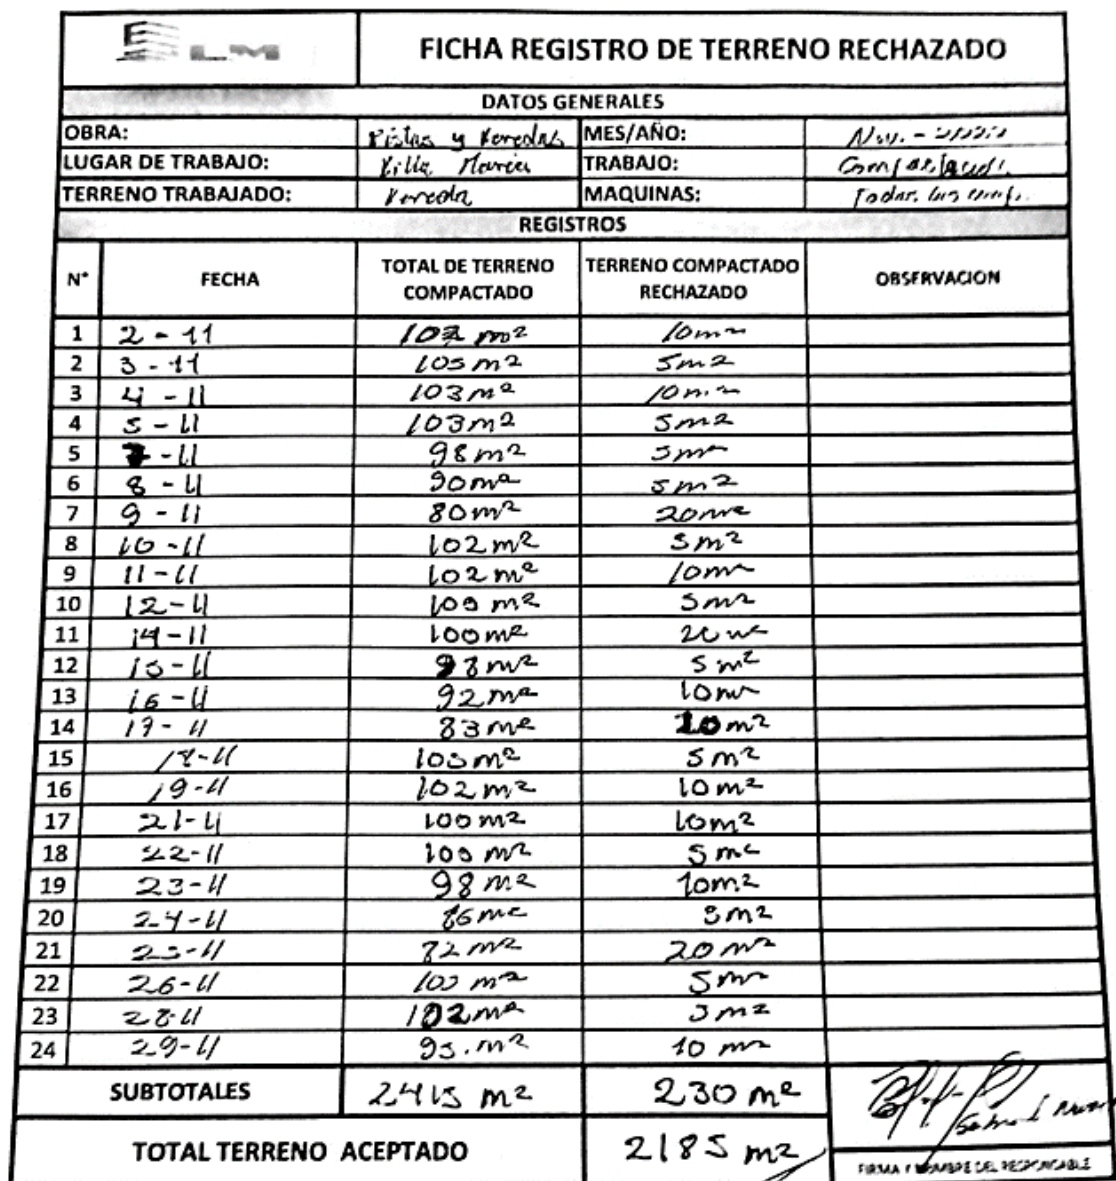 LM
FICHA REGISTRO DE TERRENO RECHAZADO
DATOS GENERALES
OBRA: Pistas y Veredas MES/AÑO: Nov. -
LUGAR DE TRABAJO: Villa Maria TRABAJO:
TERRENO TRABAJADO: Vereda MAQUINAS: Todas las
REGISTROS
N° FECHA TOTAL DE TERRENO COMPACTADO TERRENO COMPACTADO RECHAZADO OBSERVACION
1 2 - 11 102 m2 10m2
2 3 - 11 105 m2 5m2
3 4 - 11 103 m2 10m2
4 5 - 11 103m2 5m2
5 7 - 11 98m2 5m2
6 8 - 11 90m2 5m2
7 9 - 11 80m2 20m2
8 10 - 11 102m2 5m2
9 11 - 11 102m2 10m2
10 12 - 11 100 m2 5m2
11 14 - 11 100m2 20 m2
12 15 - 11 98m2 5m2
13 16 - 11 92m2 10m2
14 17 - 11 83m2 20m2
15 18-11 105m2 5m2
16 19-11 102m2 10m2
17 21-11 100m2 10m2
18 22-11 100 m2 5m2
19 23-11 98m2 10m2
20 24-11 86m2 5m2
21 25-11 72m2 20m2
22 26-11 m2 5m2
23 28-11 102m2 5m2
24 29-11 95.m2 10 m2
SUBTOTALES 2415 m2 230 m2
TOTAL TERRENO ACEPTADO 2185 m2
FIRMA Y NOMBRE DEL RESPONSABLE